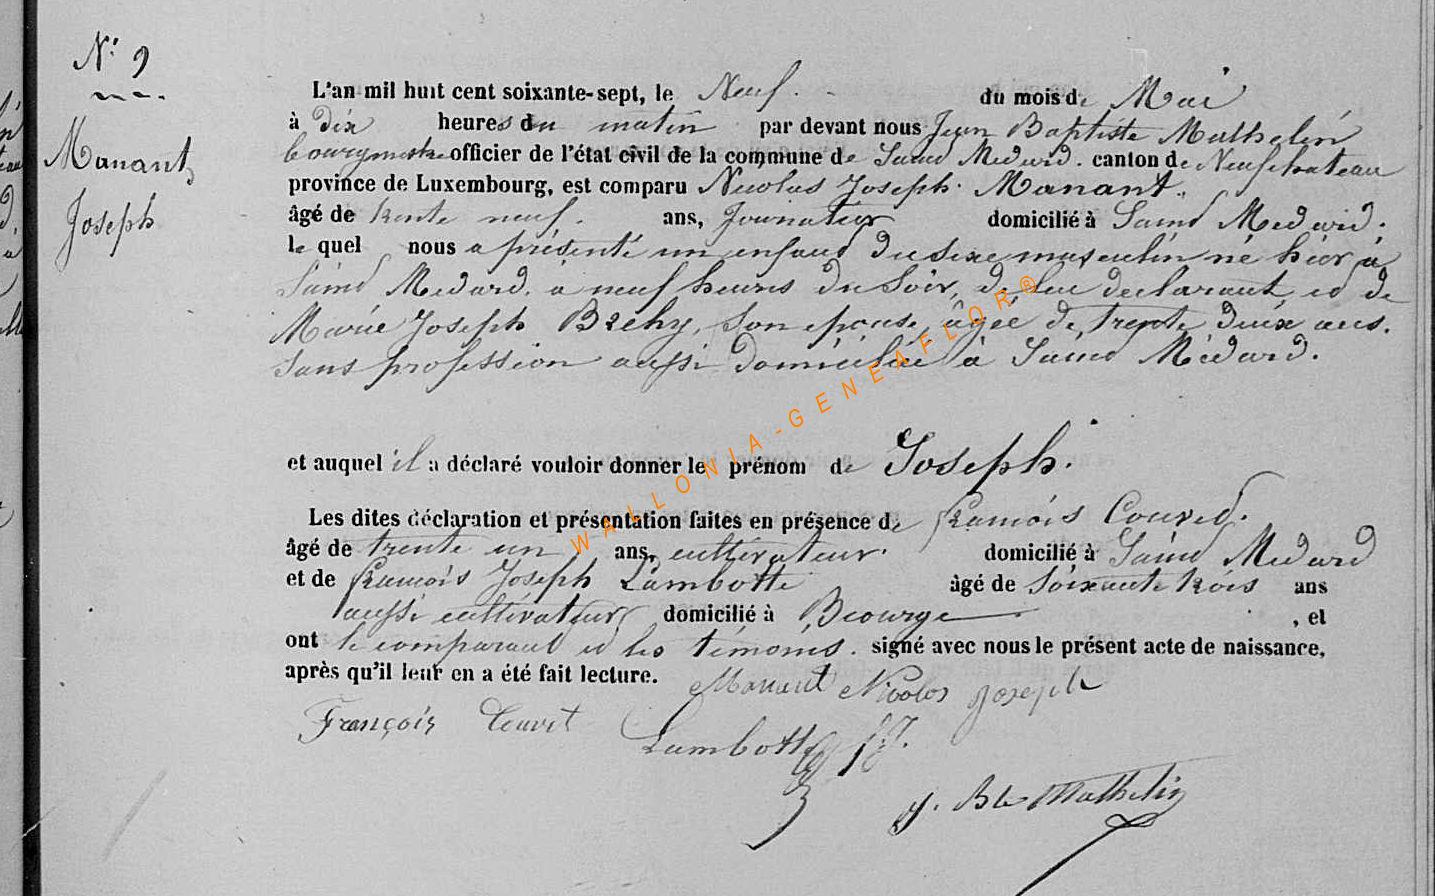 N° 9
Manant,
Joseph
L'an mil huit cent soixante-sept, le Neuf. du mois de Mai
à dix heures du matin par devant nous Jean Baptiste Mathelin
bourgmestre officier de l'état civil de la commune de Saind Medard. canton de Neufchateau
province de Luxembourg, est comparu Nicolas Joseph Manant.
âgé de trente neuf. ans, domicilié à Saind Medard.
le quel nous a présenté un enfant du sexe masculin né hier à
Saind Medard. a neuf heures du Soir, de lui declarant et de
Marie Joseph Brehy, Son epouse, âgée de trente deux ans.
Sans profession aussi domiciliée à Saind Médard.
et auquel il a déclaré vouloir donner le prénom de Joseph.
Les dites déclaration et présentation faites en présence de François Couvet.
âgé de trente un ans, cultivateur. domicilié à Saind Medard
et de François Joseph Lambotte âgé de Soixante trois ans
aussi cultivateur domicilié à Biourge , et
ont le comparant et les témoins. signé avec nous le présent acte de naissance,
après qu'il leur en a été fait lecture. Manant Nicolas Joseph
François Couvet Lambotte f. J.
J. Bte Mathelin
WALLONIA-GENEAFLOR®